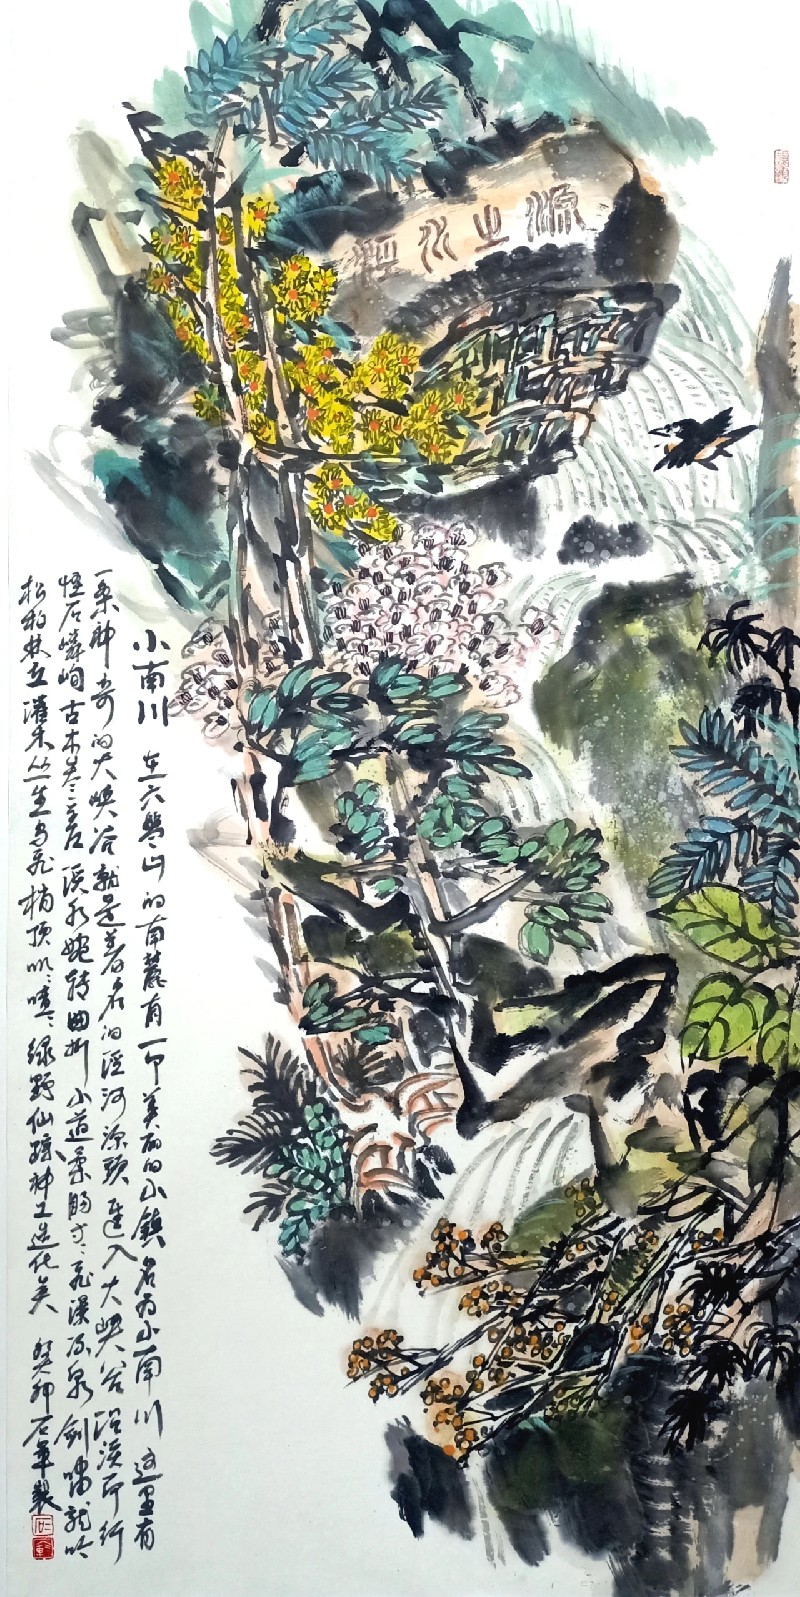 涇水之源
小南川 在六盤山的南麓有一个美丽的小鎮名为小南川这里有
一条神奇的大峡谷就是著名的涇河源頭進入大峡谷沿溪而行
怪石嶙峋古木参々溪水婉转曲折小道柔肠寸々飞瀑流泉剑啸龙吟
松柏林立灌木丛生鸟飞梢顶叽々喳々绿野仙踪神工造化矣 癸卯石军製